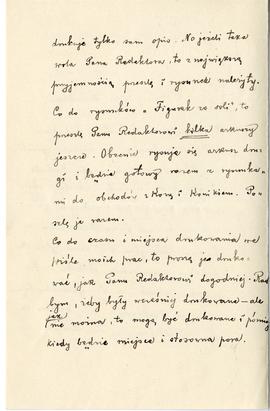 drukuje tylko sam opis. No jeżeli taka
wola Pana Redaktora, to z największą
przyjemnością prześlę i rysunek należyty.
Co do rysunków „Figurek ze soli", to
prześlę Panu Redaktorowi kilka arkuszy
jeszcze. Obecnie rysuję się arkusz dru-
gi i będzie gotowy razem z rysunka-
mi do obchodów z Kozą i Konikiem. Po-
szlę je razem.
Co do czasu i miejsca drukowania we
moich prac, to proszę je druko-
wać, jak Panu Redaktorowi dogodniej. Rad
bym, żeby były wcześniej drukowane – ale
jak nie można, to mogą być drukowane i
kiedy będzie miejsce i stosowna pora.